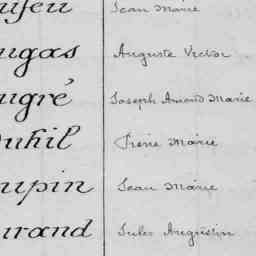 ufeu Jean Marie
ugas Auguste Victor
ugré Joseph Amand Marie
uhil Pierre Marie
upin Jean Marie
urand Jules Augustin